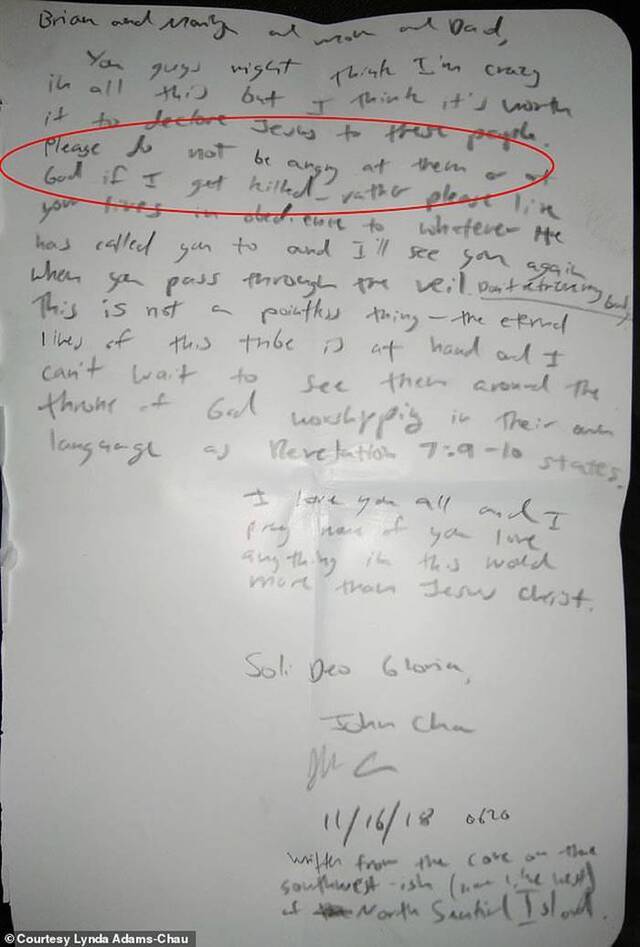 Brian and Marilyn and mom and Dad,
You guys might think I'm crazy
in all this but I think it's worth
it to declare Jesus to these people.
Please do not be angry at them or at
God if I get killed - rather please live
your lives in obedience to whatever He
has called you to and I'll see you again
when you pass through the veil.
This is not a pointless thing - the eternal
lives of this tribe is at hand and I
can't wait to see them around the
throne of God worshipping in their own
language as Revelation 7:9-10 states.
I love you all and I
pray none of you love
anything in this world
more than Jesus Christ.
Soli Deo Gloria,
John Chau
11/16/18 0620
Written from the cove on the
southwest-ish (
of North Sentinel Island.
©Courtesy Lynda Adams-Chau